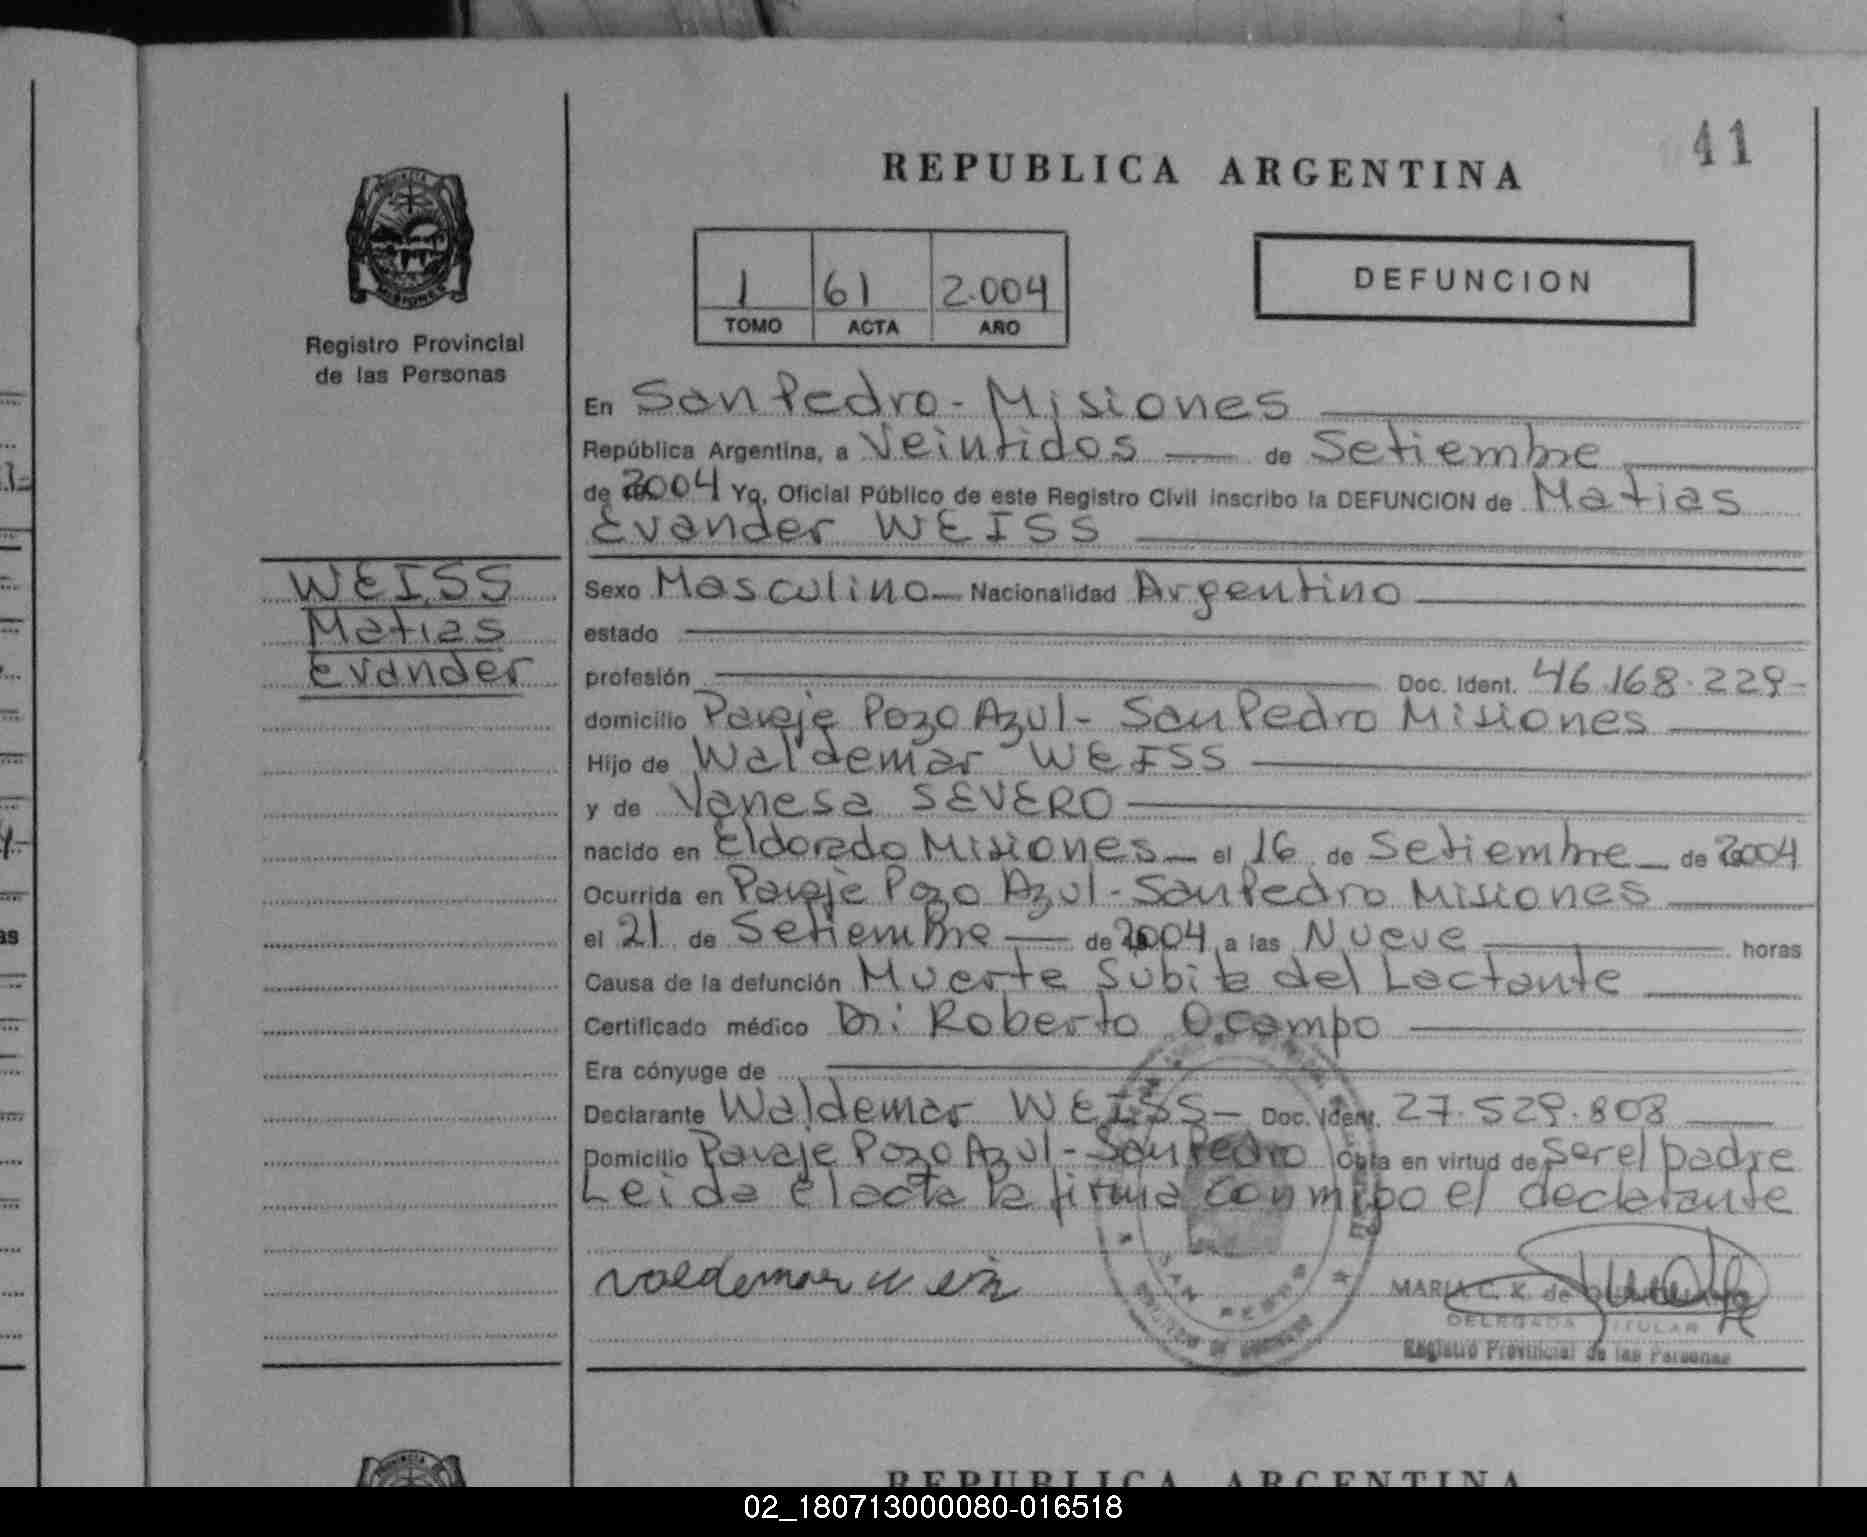 41
REPUBLICA ARGENTINA
1 61 2.004
TOMO ACTA AÑO
DEFUNCION
PROVINCIA
MISIONES
Registro Provincial
de las Personas
WEISS
Matias
Evander
En San Pedro - Misiones
República Argentina, a Veintidos de Setiembre
de 2004 Yo, Oficial Público de este Registro Civil inscribo la DEFUNCION de Matias
Evander WEISS
Sexo Masculino Nacionalidad Argentino
estado
profesión Doc. Ident. 46.168.229-
domicilio Paraje Pozo Azul - San Pedro Misiones
Hijo de Waldemar WEISS
y de Vanesa SEVERO
nacido en Eldorado Misiones el 16 de Setiembre de 2004
Ocurrida en Paraje Pozo Azul - San Pedro Misiones
el 21 de Setiembre de 2004 a las Nueve horas
Causa de la defunción Muerte Subita del Lactante
Certificado médico Dr: Roberto Ocampo
Era cónyuge de
Declarante Waldemar WEISS - Doc. Ident. 27.529.808
Domicilio Paraje Pozo Azul - San Pedro Obra en virtud de ser el padre
Leida el acta la firma conmigo el declarante
SAN PEDRO
MARIA C. K. de
DELEGADA TITULAR
Registro Provincial de las Personas
REPUBLICA ARGENTINA
02_180713000080-016518